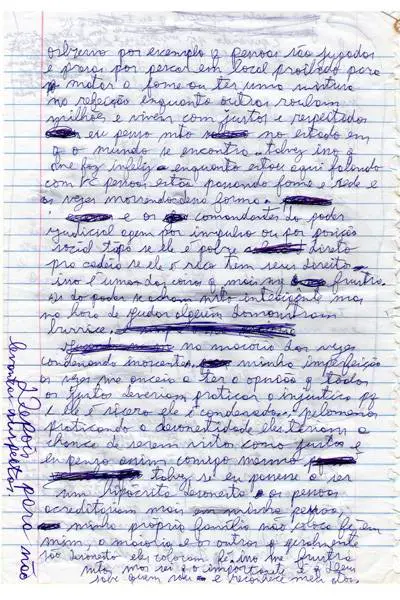 observo por exemplo q pessoas são jugadas
e presas por pescar em local proibido para
matar a fome ou ter uma mistura
na refeicção enquanto outros roubam
milhões e vivem com justos e respeitados
eu penso não no estado em
q o mundo se encontra talvez ino q
me faz infeliz enquanto estou aqui falando
com vc pessoas estão passando fome e sede e
as vezes morrendo dessa forma
e os comandantes do poder
judicial agem por impulso ou por posição
social tipo se ele é pobre direto
pra cadeia se ele e rico tem seus direitos
ino é uma das coisas q mais me frustra
os do poder se acham muito inteligente mas
na hora de judar alguem demonstram
burrice
na maioria das vezes
condenando inocentes, minha imperfeição
as vezes me anceia a ter a opnião q todos
os justos deveriam praticar a injustiça pq
ele é sicero ele é condenado pelo menos
praticando a desonetidade eles teriam a
chance de serem vistos como justos e
eu penso asim comigo mesmo
talvez se eu panese a ser
um hipócrita desonesto as pessoas
acreditariam mais em minha pessoa,
minha própria familia não coloca fé em
mim, a maioria e os outros q geralmente
são desonesto eles colocam fé, ino me frustra
muito mas sei q o importante é q Deus
sabe quem sou e reconhece meu
Depois para não
levantar suspeitas,